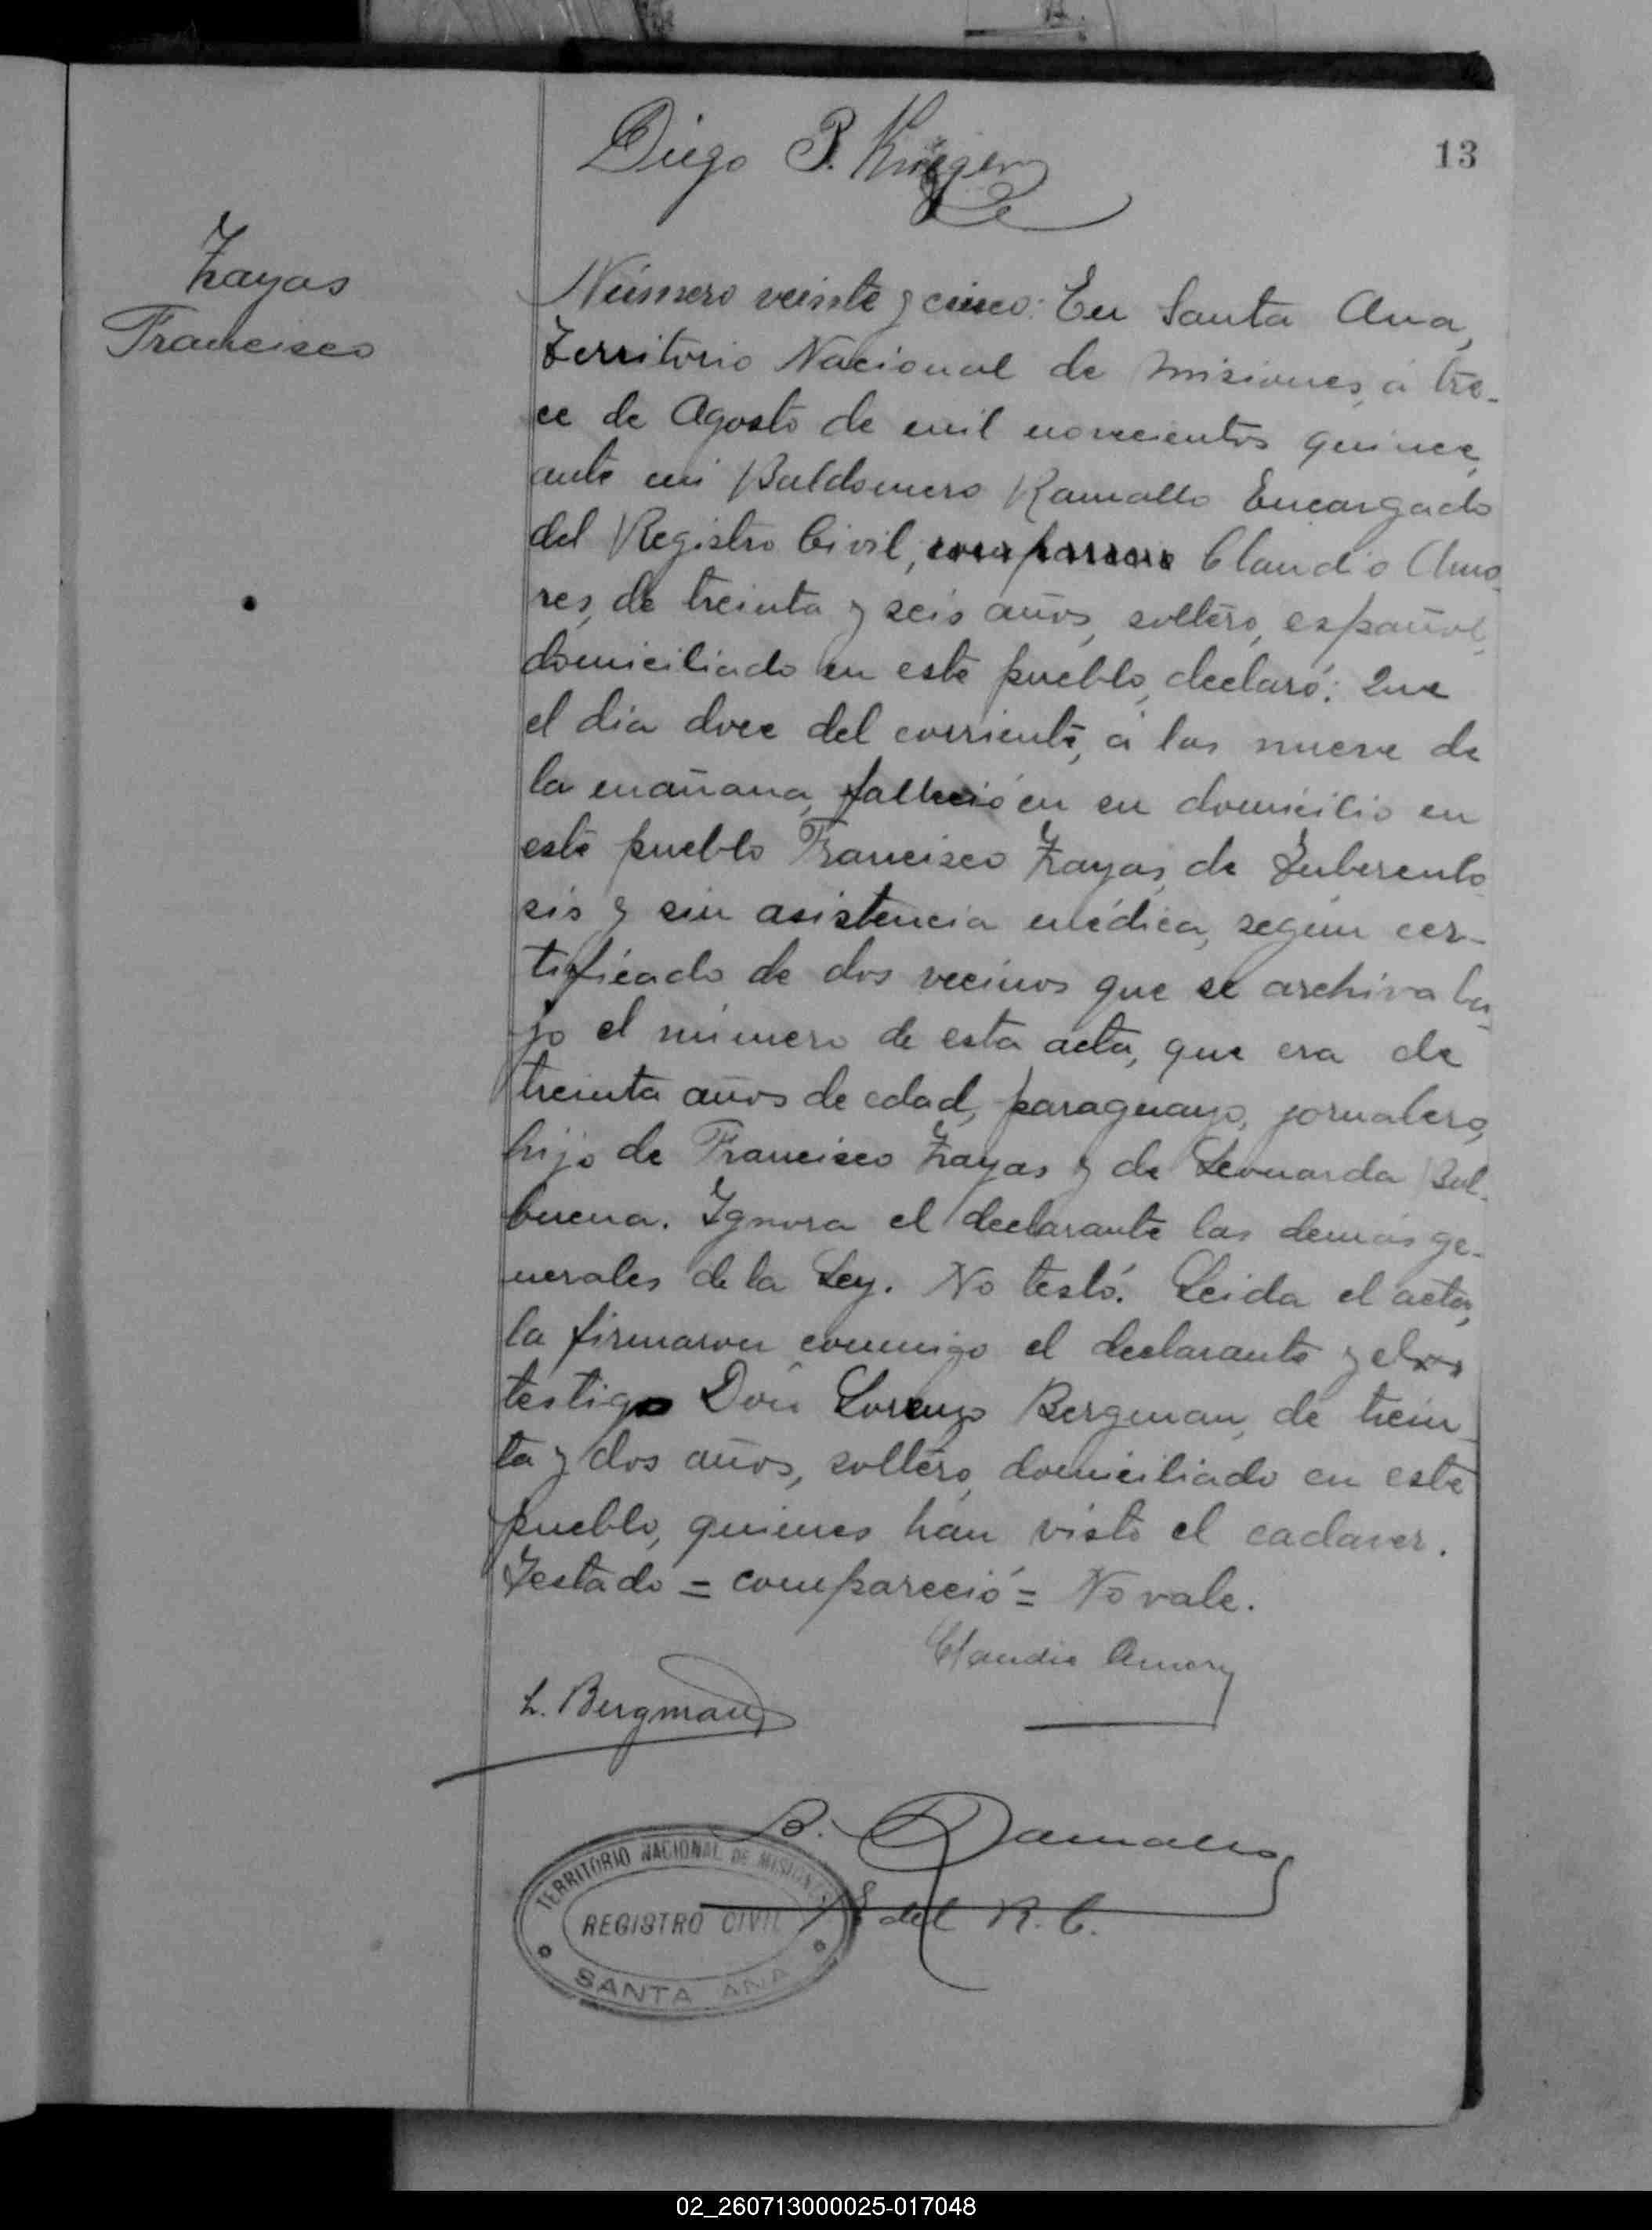 Diego P. Krieger
13
Zayas
Francisco
Número veinte y cinco: En Santa Ana,
Territorio Nacional de Misiones, á tre-
ce de Agosto de mil novecientos quince,
ante mi Baldomero Ramallo Encargado
del Registro Civil, compareció Claudio Amo-
res, de treinta y seis años, soltero, español,
domiciliado en este pueblo, declaró: Que
el dia doce del corriente, á las nueve de
la mañana, falleció en su domicilio en
este pueblo Francisco Zayas, de Tuberculo
sis y sin asistencia médica, según cer-
tificado de dos vecinos que se archiva ba-
jo el número de esta acta, que era de
treinta años de edad, paraguayo, jornalero,
hijo de Francisco Zayas y de Leonarda Bal-
buena. Ignora el declarante las demás ge-
nerales de la Ley. No testó. Leida el acta,
la firmaron conmigo el declarante y el
testigo Don Lorenzo Bergman, de trein-
ta y dos años, soltero, domiciliado en este
pueblo, quienes han visto el cadaver.
Testado = compareció = No vale.
Claudio Amores
L. Bergmann
B. Ramallo
E del R. C.
TERRITORIO NACIONAL DE MISIONES
REGISTRO CIVIL
SANTA ANA
02_260713000025-017048